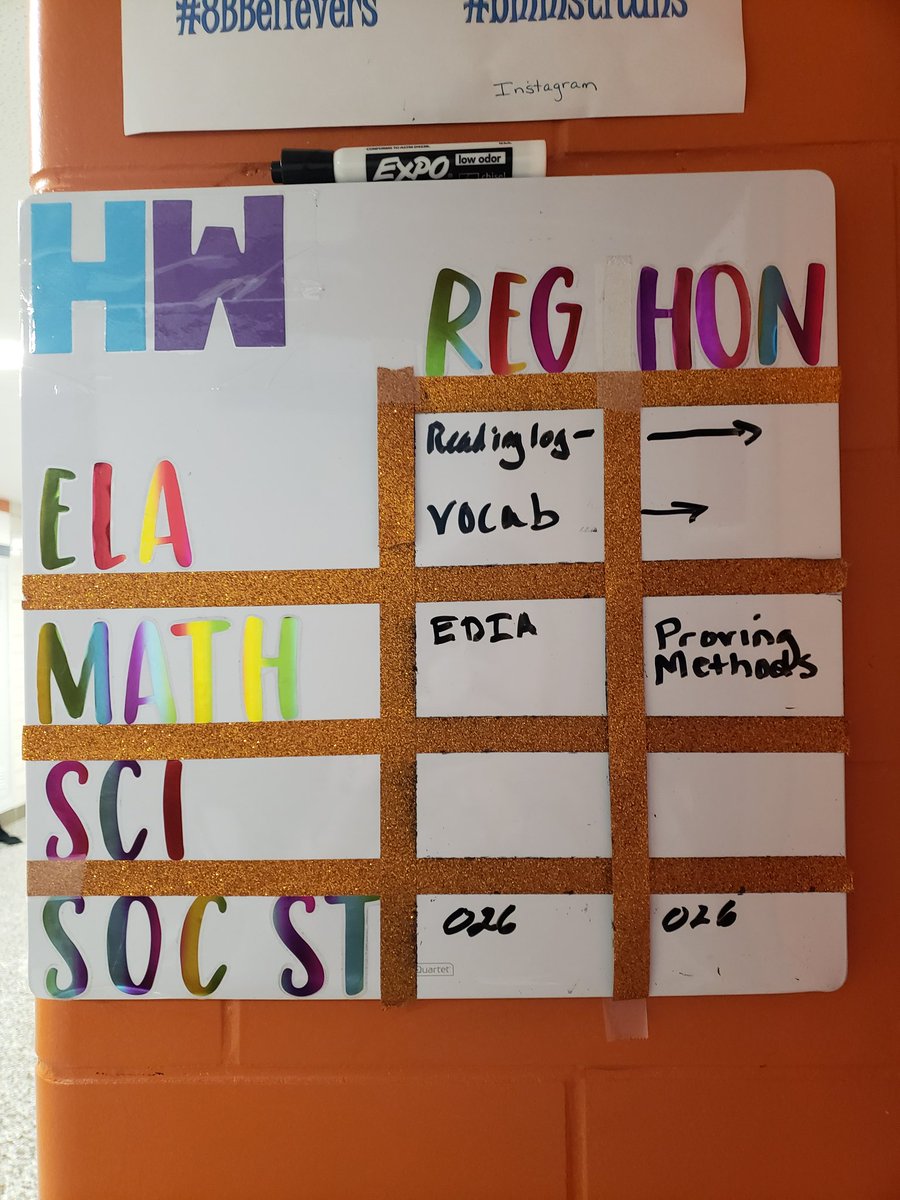 #8BBelievers
Instagram
EXPO low odor
chisel
HW
REG HON
Reading log-
ELA
vocab
MATH
EDIA
Proving
Methods
SCI
SOC ST
026 026
Quartet